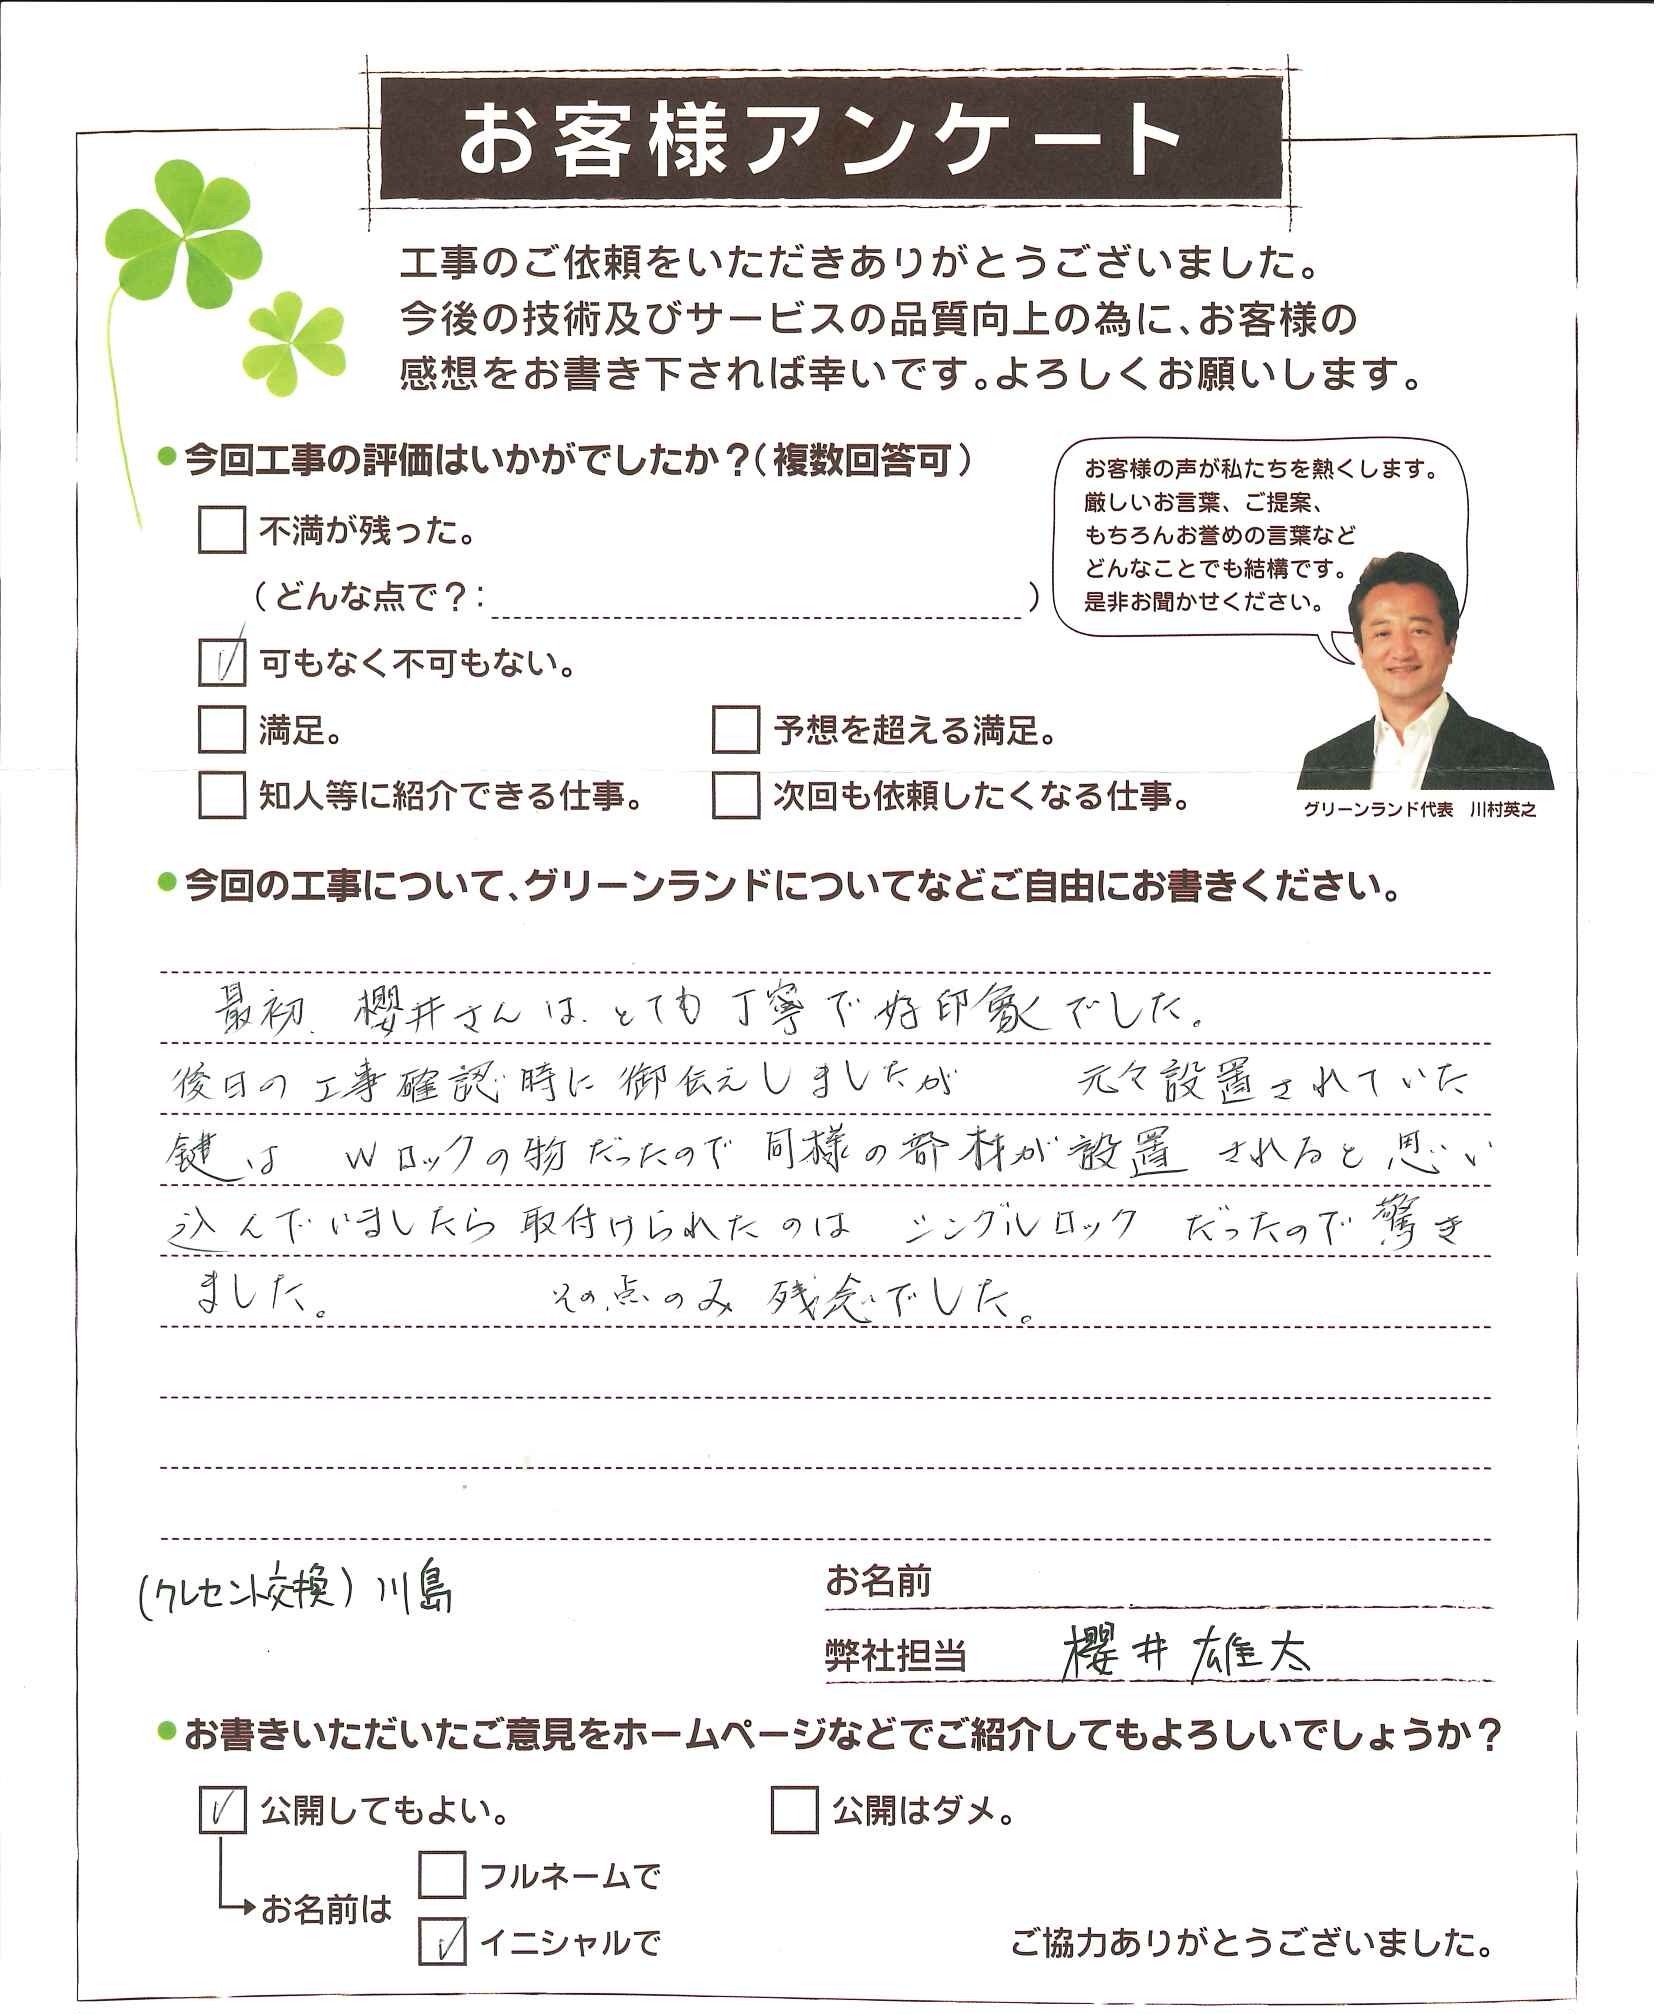 お客様アンケート
工事のご依頼をいただきありがとうございました。
今後の技術及びサービスの品質向上の為に、お客様の
感想をお書き下されば幸いです。よろしくお願いします。
●今回工事の評価はいかがでしたか？（複数回答可）
不満が残った。
（どんな点で？：　　　）
可もなく不可もない。
満足。
予想を超える満足。
知人等に紹介できる仕事。
次回も依頼したくなる仕事。
お客様の声が私たちを熱くします。
厳しいお言葉、ご提案、
もちろんお誉めの言葉など
どんなことでも結構です。
是非お聞かせください。
グリーンランド代表　川村英之
●今回の工事について、グリーンランドについてなどご自由にお書きください。
最初、櫻井さんは、とても丁寧で好印象でした。
後日の工事確認時に御伝えしましたが　元々設置されていた
鍵は　Wロックの物だったので同様の部材が設置されると思い
込んでいましたら取付けられたのは　シングルロックだったので驚き
ました。　その点のみ残念でした。
(クレセント交換) 川島
お名前
弊社担当　櫻井雄太
●お書きいただいたご意見をホームページなどでご紹介してもよろしいでしょうか？
公開してもよい。
公開はダメ。
お名前は
フルネームで
イニシャルで
ご協力ありがとうございました。